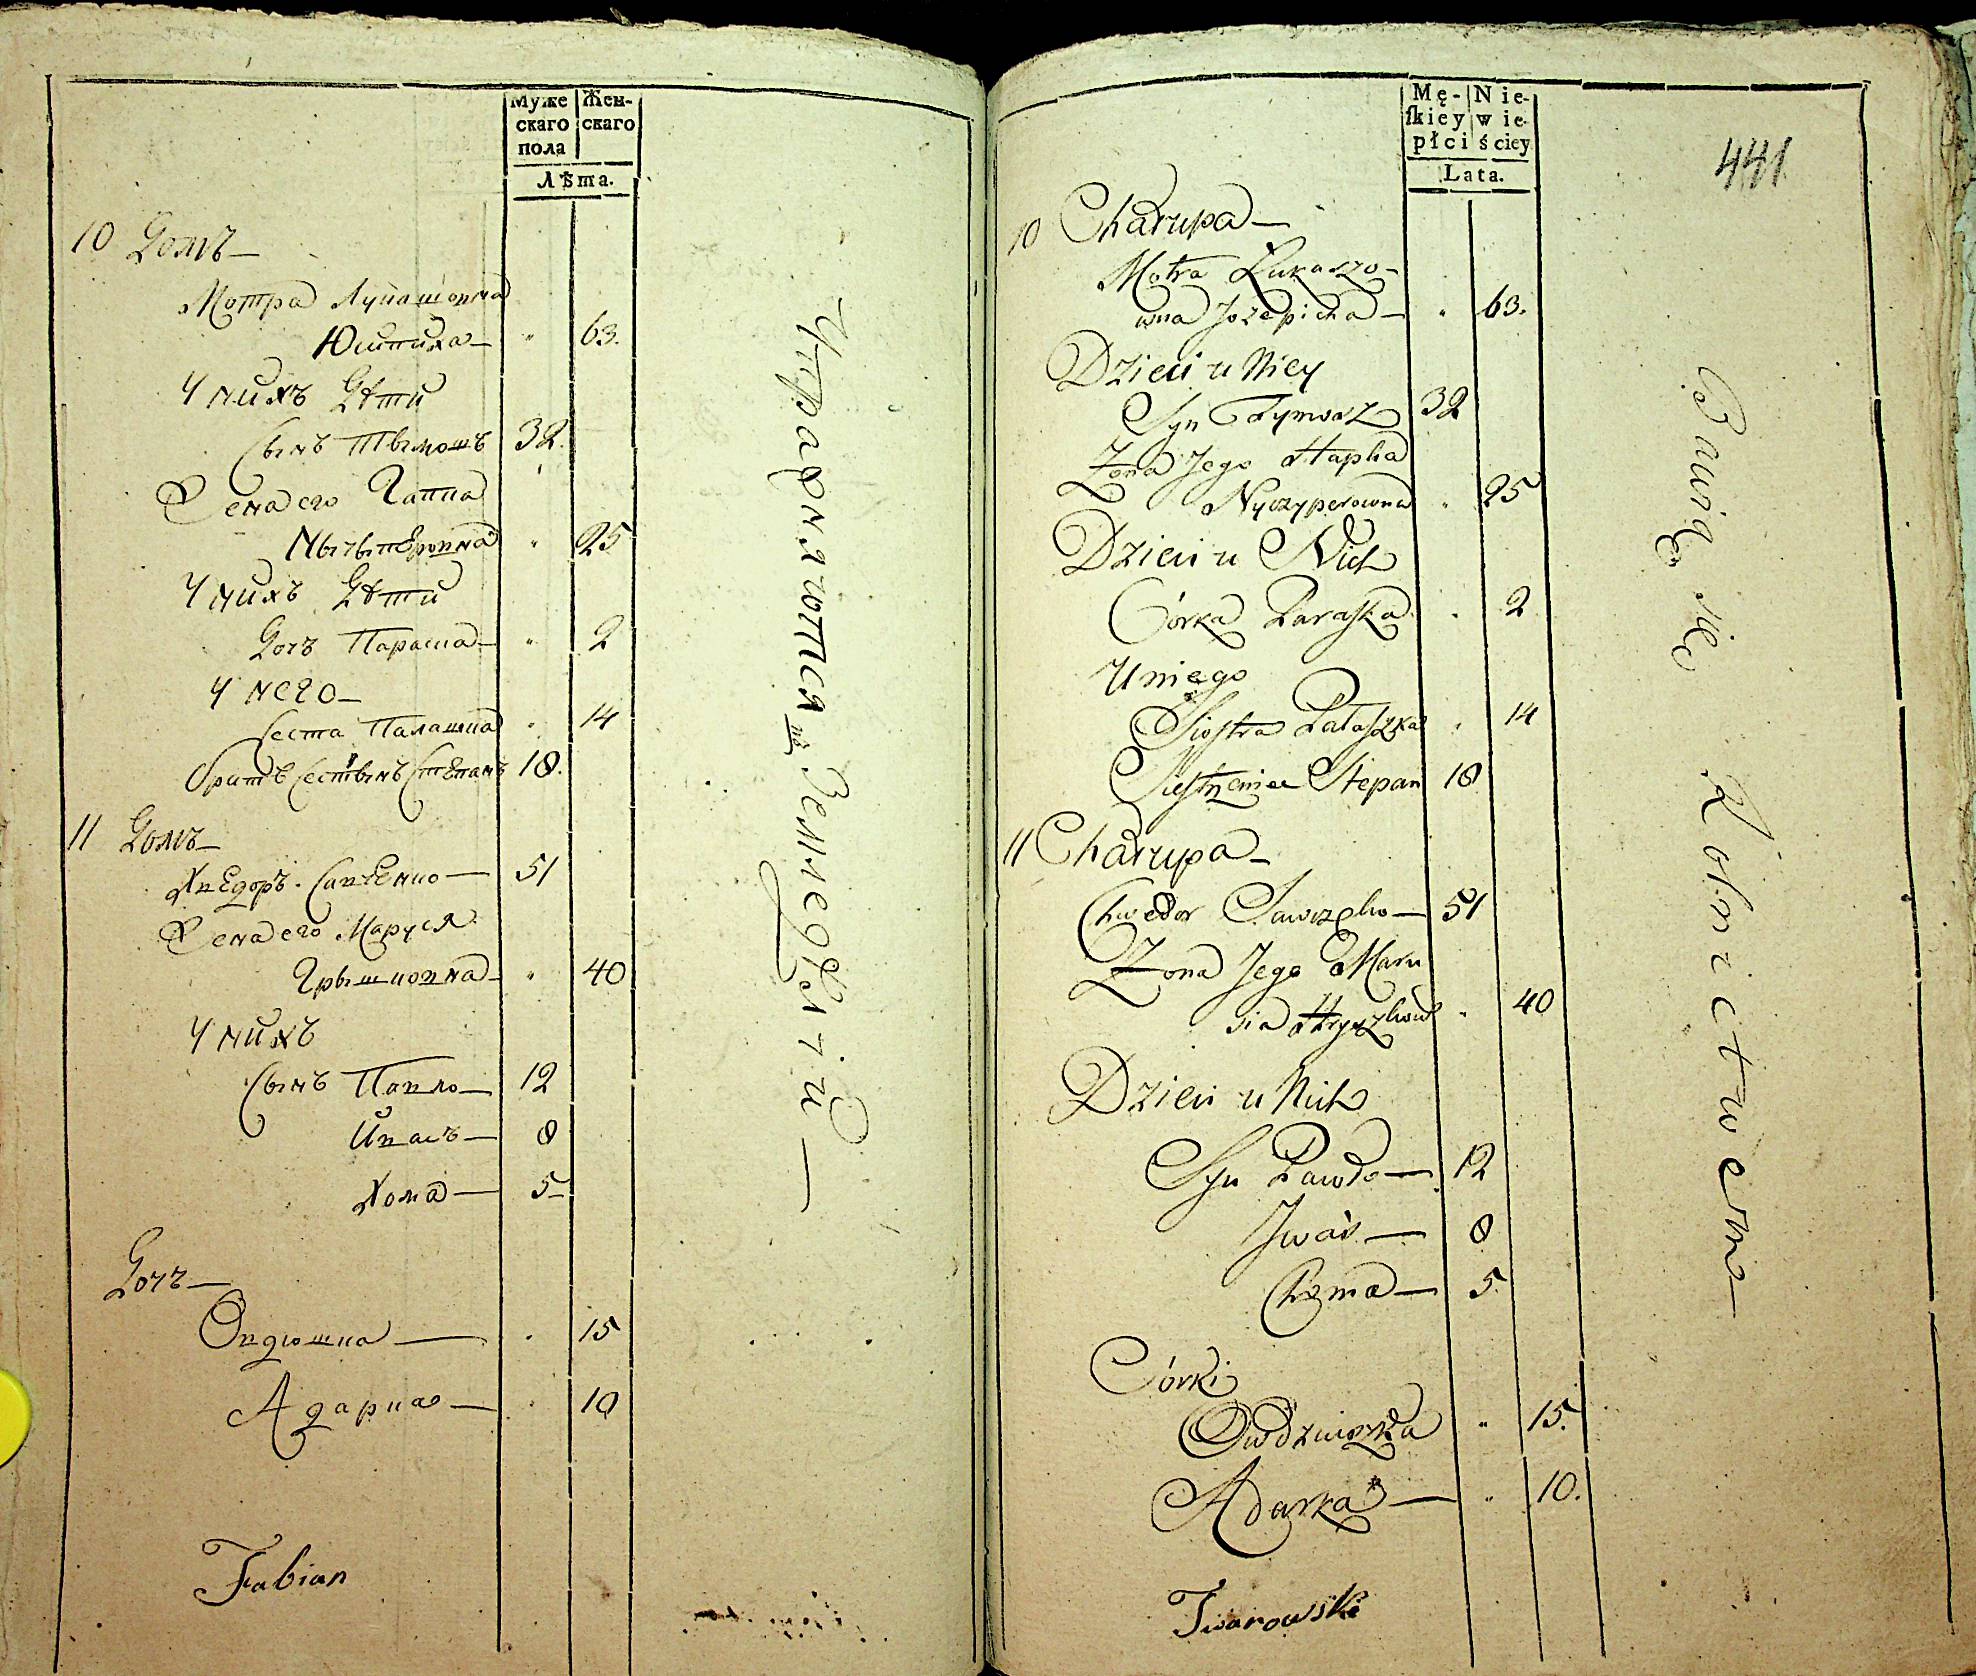 Муже Жен-
скаго скаго
пола
Лѣта.
10 Домъ —
Мотра Лукашовна
Юзипиха — " 63.
У нихъ Дѣти
Сынъ Тымошъ 32.
Жена его Гапка
Нычыперовна " 25
У нихъ Дѣти
Дочъ Параска — " 2
У него —
Сестра Палашка " 14
Братъ Степанъ 18.
11 Домъ —
Хведоръ Савченко — 51
Жена его Маруся
Грышковна — " 40
У нихъ
Сынъ Павло — 12
Ивась — 8
Хома — 5 —
Дочъ —
Овдюшка — " 15
Адарка — " 10
Fabian
Упражняются въ Земледѣлiи —
Mę- Nie-
ſkiey wie-
płci ściey
Lata.
441
10 Chałupa —
Motra Łukaszo-
wna Jozepicha — " 63.
Dzieci u Niey
Syn Tymosz 32
Zona Jego Hapka
Nyczyperowna " 25
Dzieci u Nich
Córka Paraſka " 2
U niego
Sioſtra Pałaſzka " 14
Sieſtrzeniec Stepan 18
11 Chałupa —
Chwedor Sawczeko — 51
Zona Jego Maru
sia Hryszkow " 40
Dzieci u Nich
Syn Pawło — 12
Jwaś — 8
Choma — 5
Córki
Owdziuszka " 15.
Adarka — " 10.
Twarowski
Bawią się Rolnictwem —